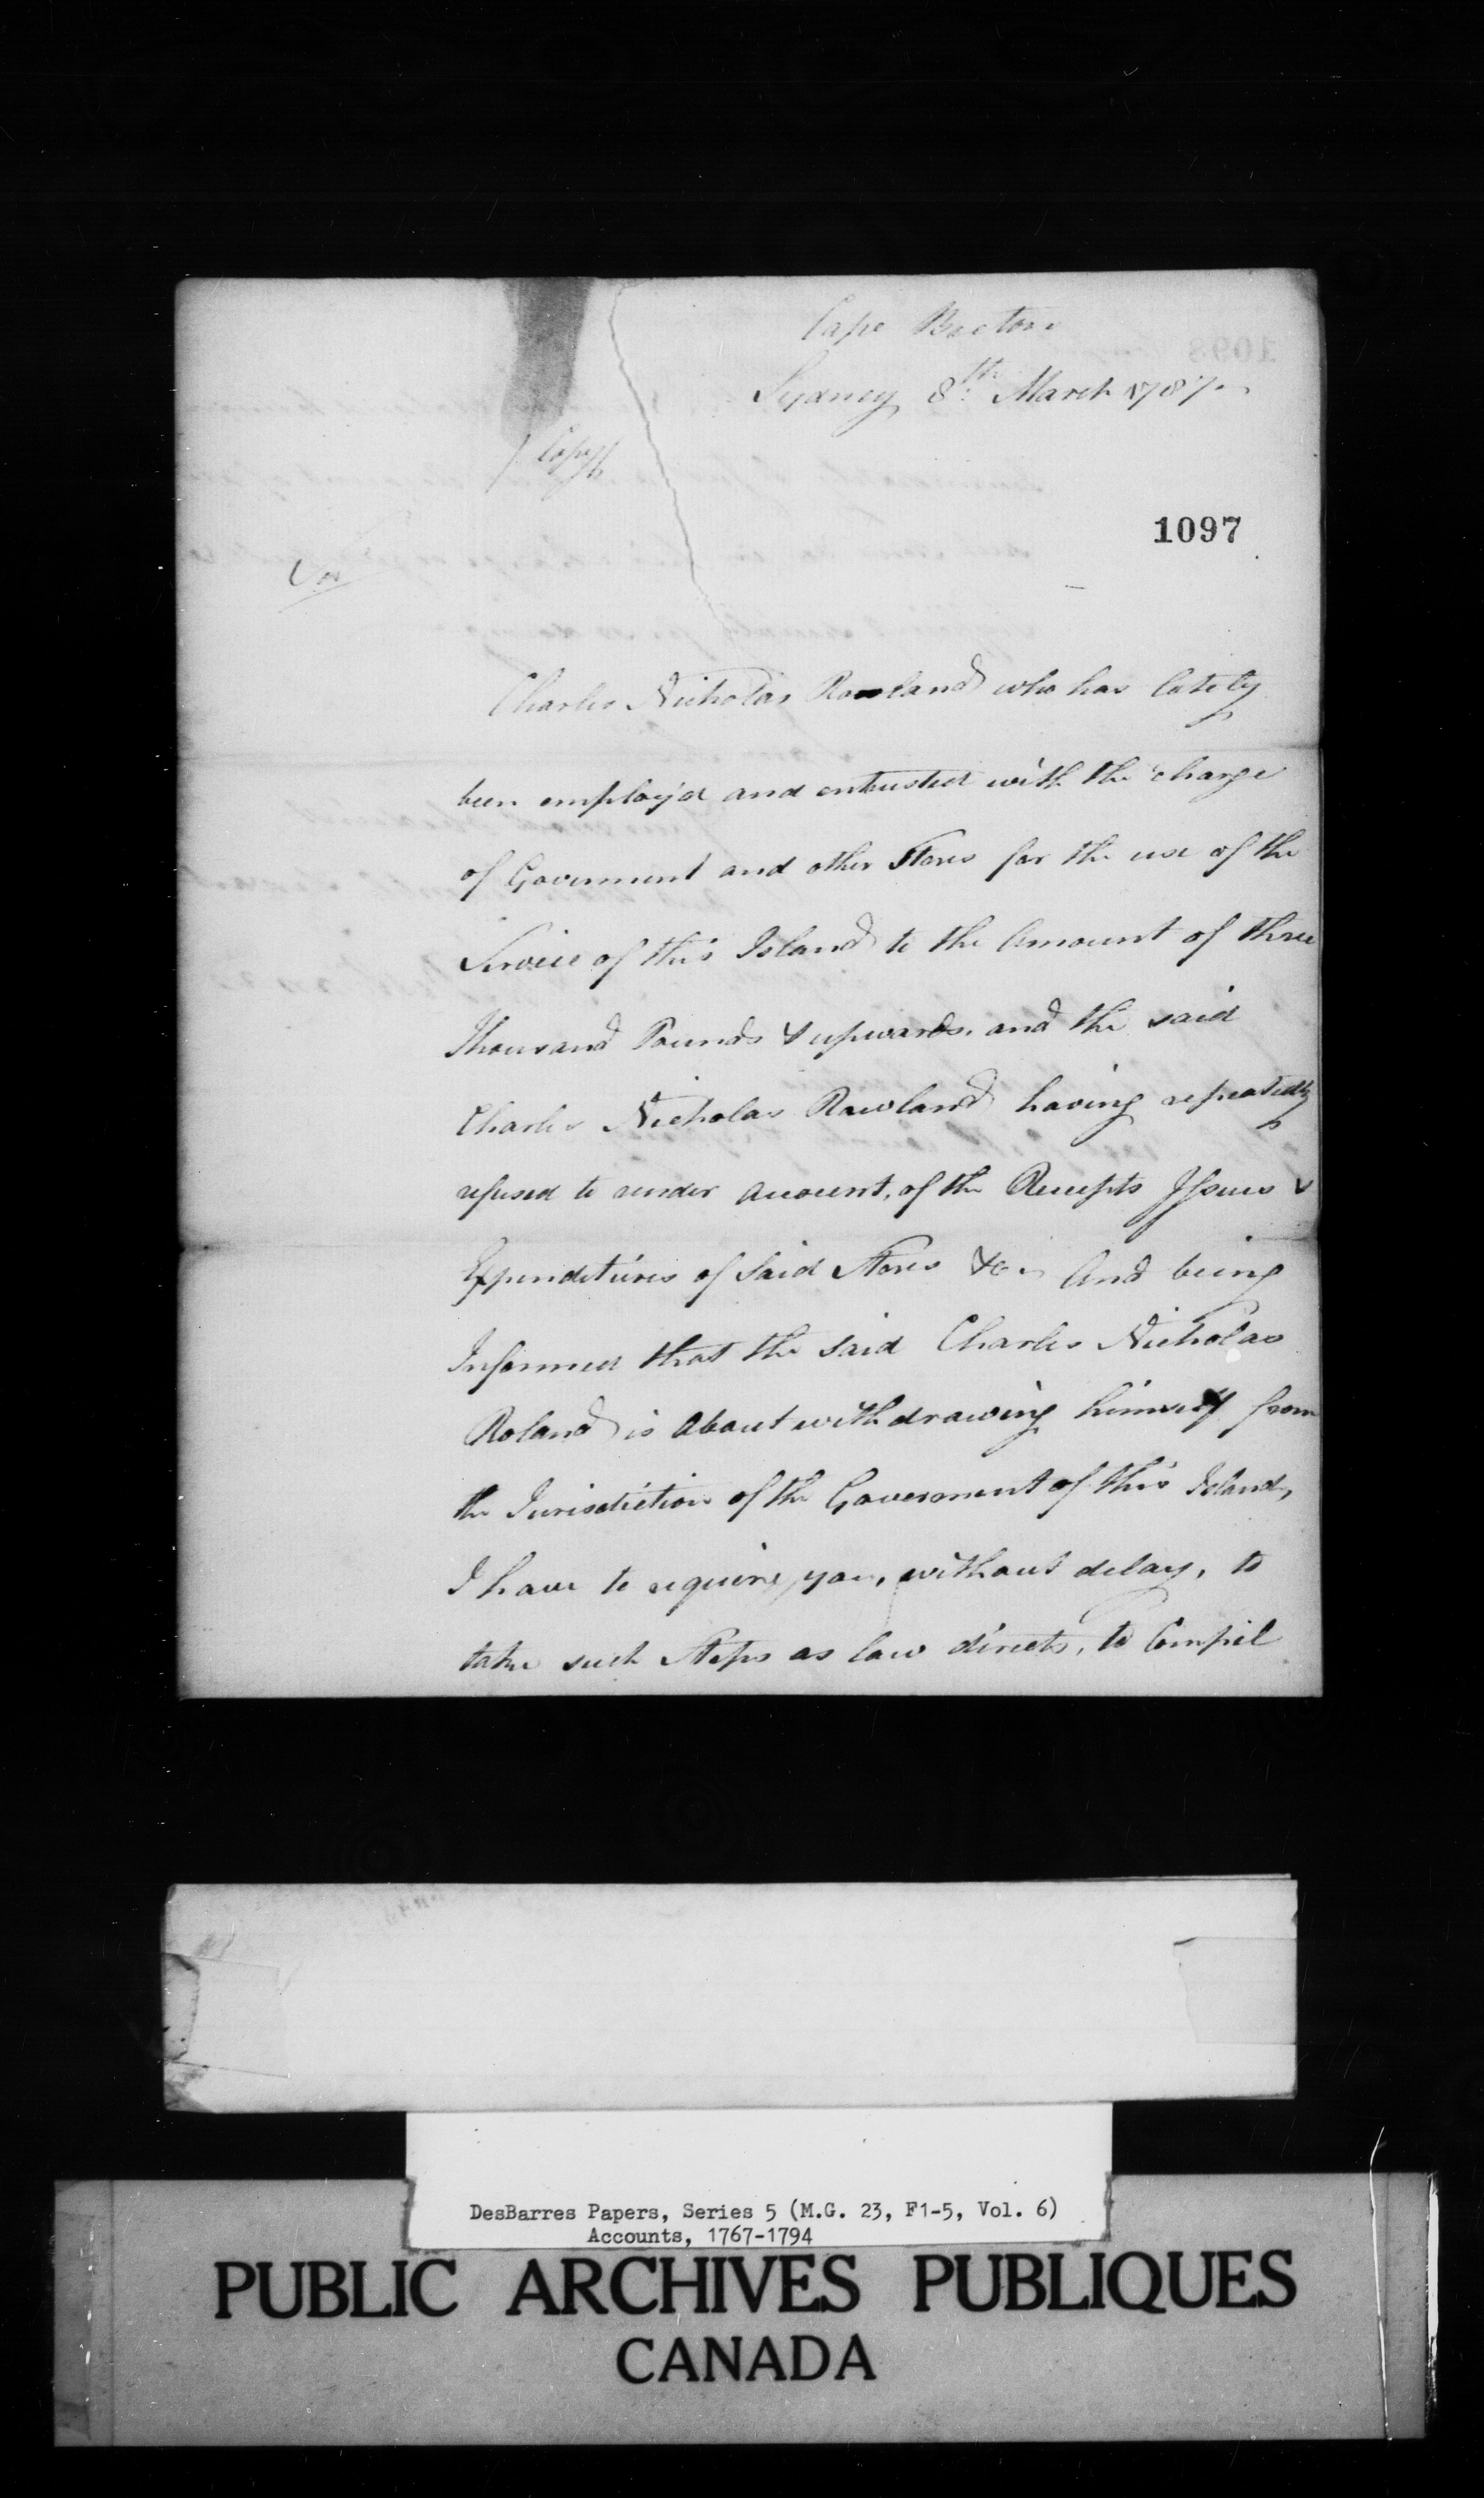 Cape Breton
Sydney 8th March 1787
/Copy/
1097
Charles Nicholas Rowland who has lately
been employ'd and entrusted with the charge
of Goverment and other Stores for the use of the
Service of this Island to the Amount of three
Thousand Pounds & upwards. and the said
Charles Nicholas Rowland having repeatedly
refused to render Account, of the Receipts Issues &
Expenditures of Said Stores &c. And being
Informed that the said Charles Nicholas
Roland is About withdrawing himself from
the Jurisdiction of the Government of this Island,
I have to require you, without delay, to
take such Steps as law directs, to Compel
DesBarres Papers, Series 5 (M.G. 23, F1-5, Vol. 6)
Accounts, 1767-1794
PUBLIC ARCHIVES PUBLIQUES
CANADA